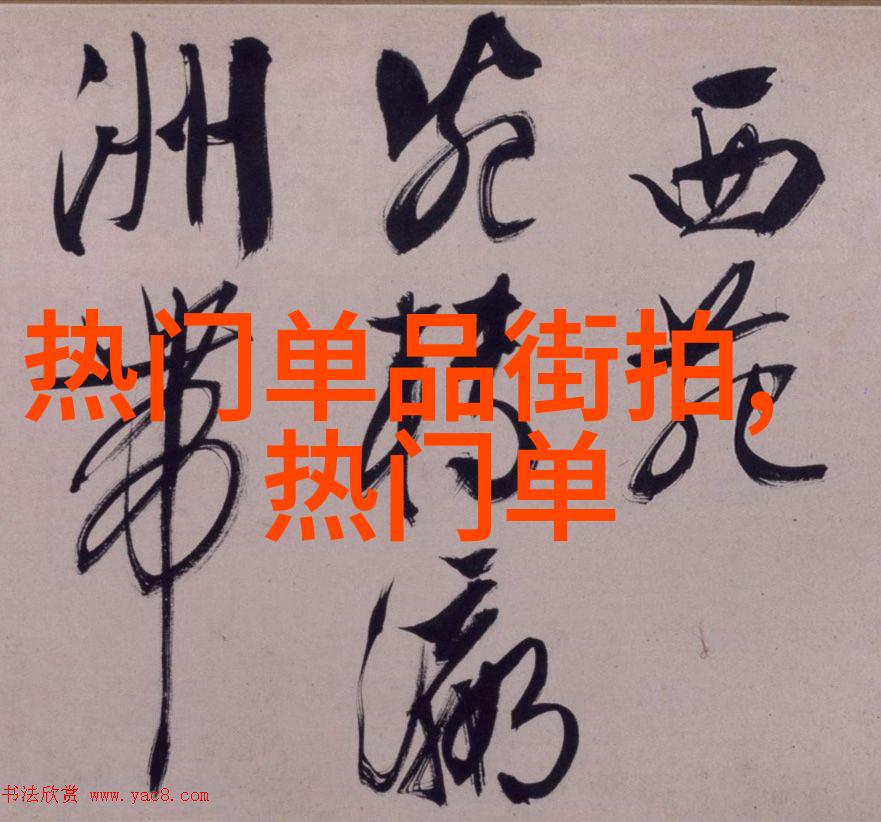 热门单品街拍,
热门单
西苑
瀛
洲
书法欣赏 www.yac8.com